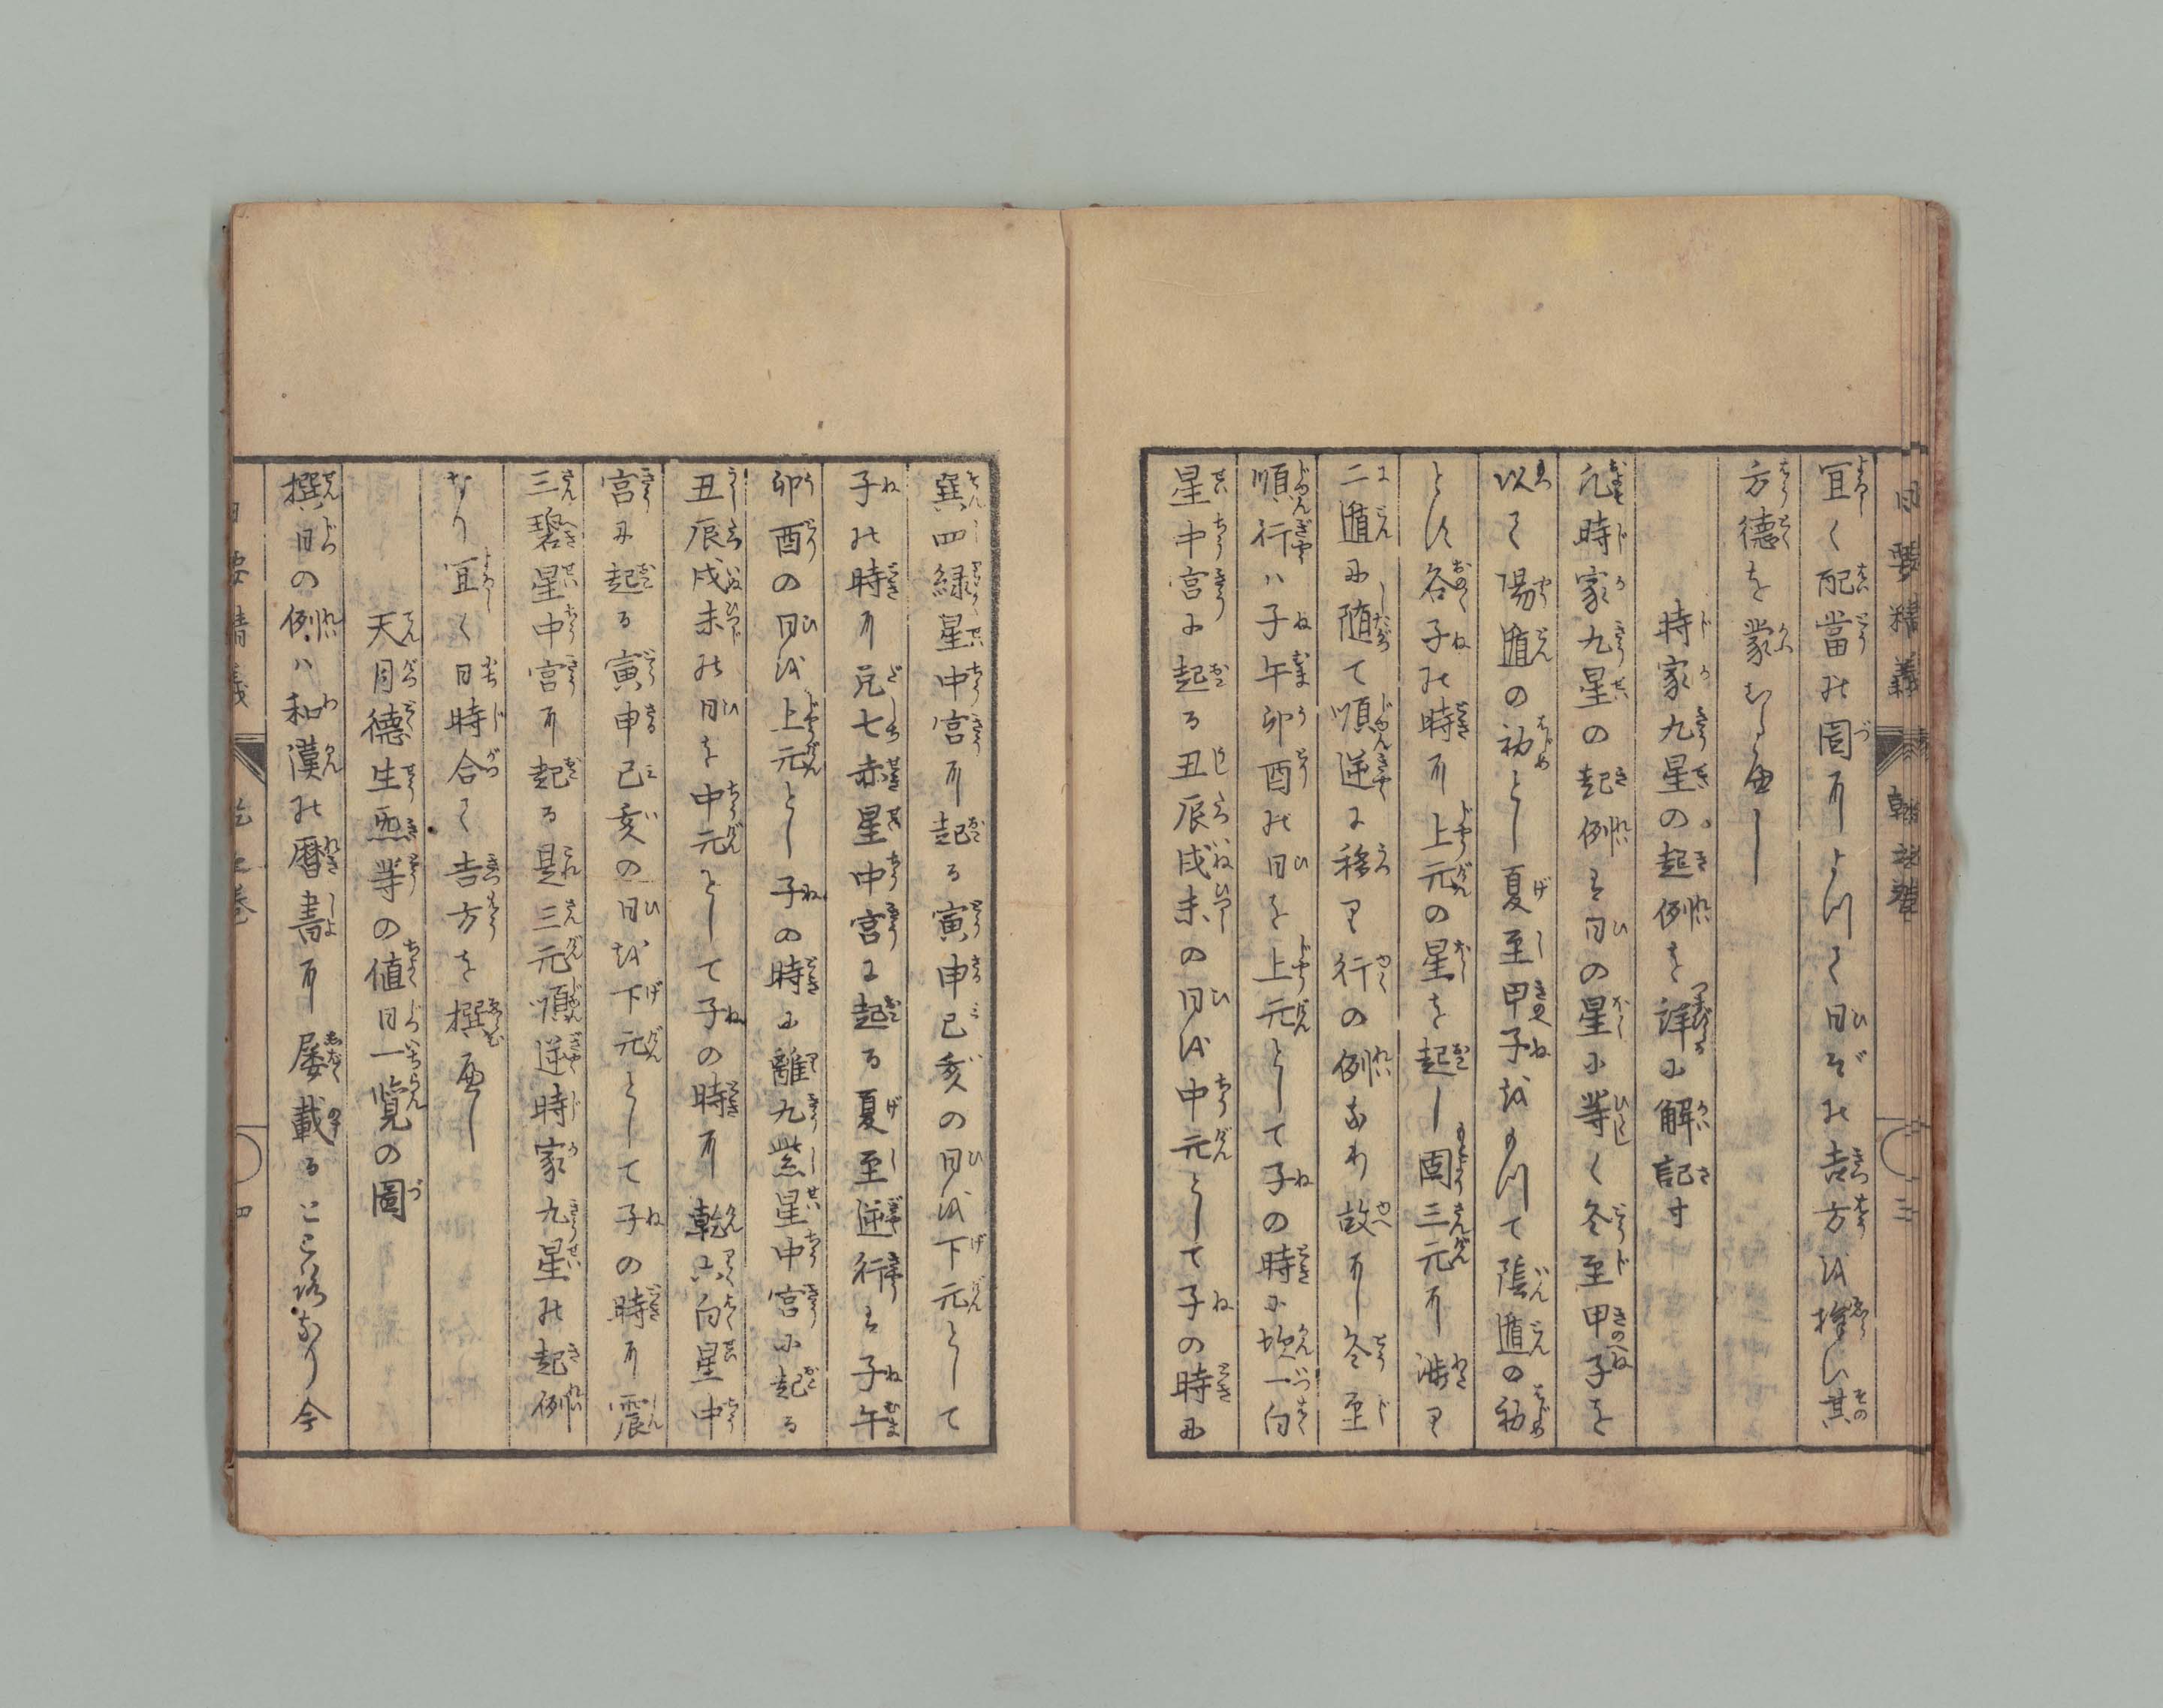 宜く配當の圖によつて日どの吉方を擇び其
方徳を蒙むるべし
時家九星の起例を詳に解記す
凡時家九星の起例は日の星に等く冬至甲子を
以て陽遁の初とし夏至甲子をもつて陰遁の初
とす各子の時に上元の星を起し固三元に渉り
二遁に随て順逆に移り行の例あり故に冬至
順行ハ子午卯酉の日を上元として子の時に坎一白
星中宮に起る丑辰戌未の日を中元として子の時に
巽四緑星中宮に起る寅申巳亥の日を下元として
子の時に兌七赤星中宮に起る夏至逆行は子午
卯酉の日を上元とし子の時に離九紫星中宮に起る
丑辰戌未の日を中元として子の時に乾六白星中
宮に起る寅申巳亥の日を下元として子の時に震
三碧星中宮に起る是三元順逆時家九星の起例
なり宜く日時合て吉方を撰むべし
天月徳生炁等の値日一覧の圖
撰日の例ハ和漢の暦書に屡載るところなり今